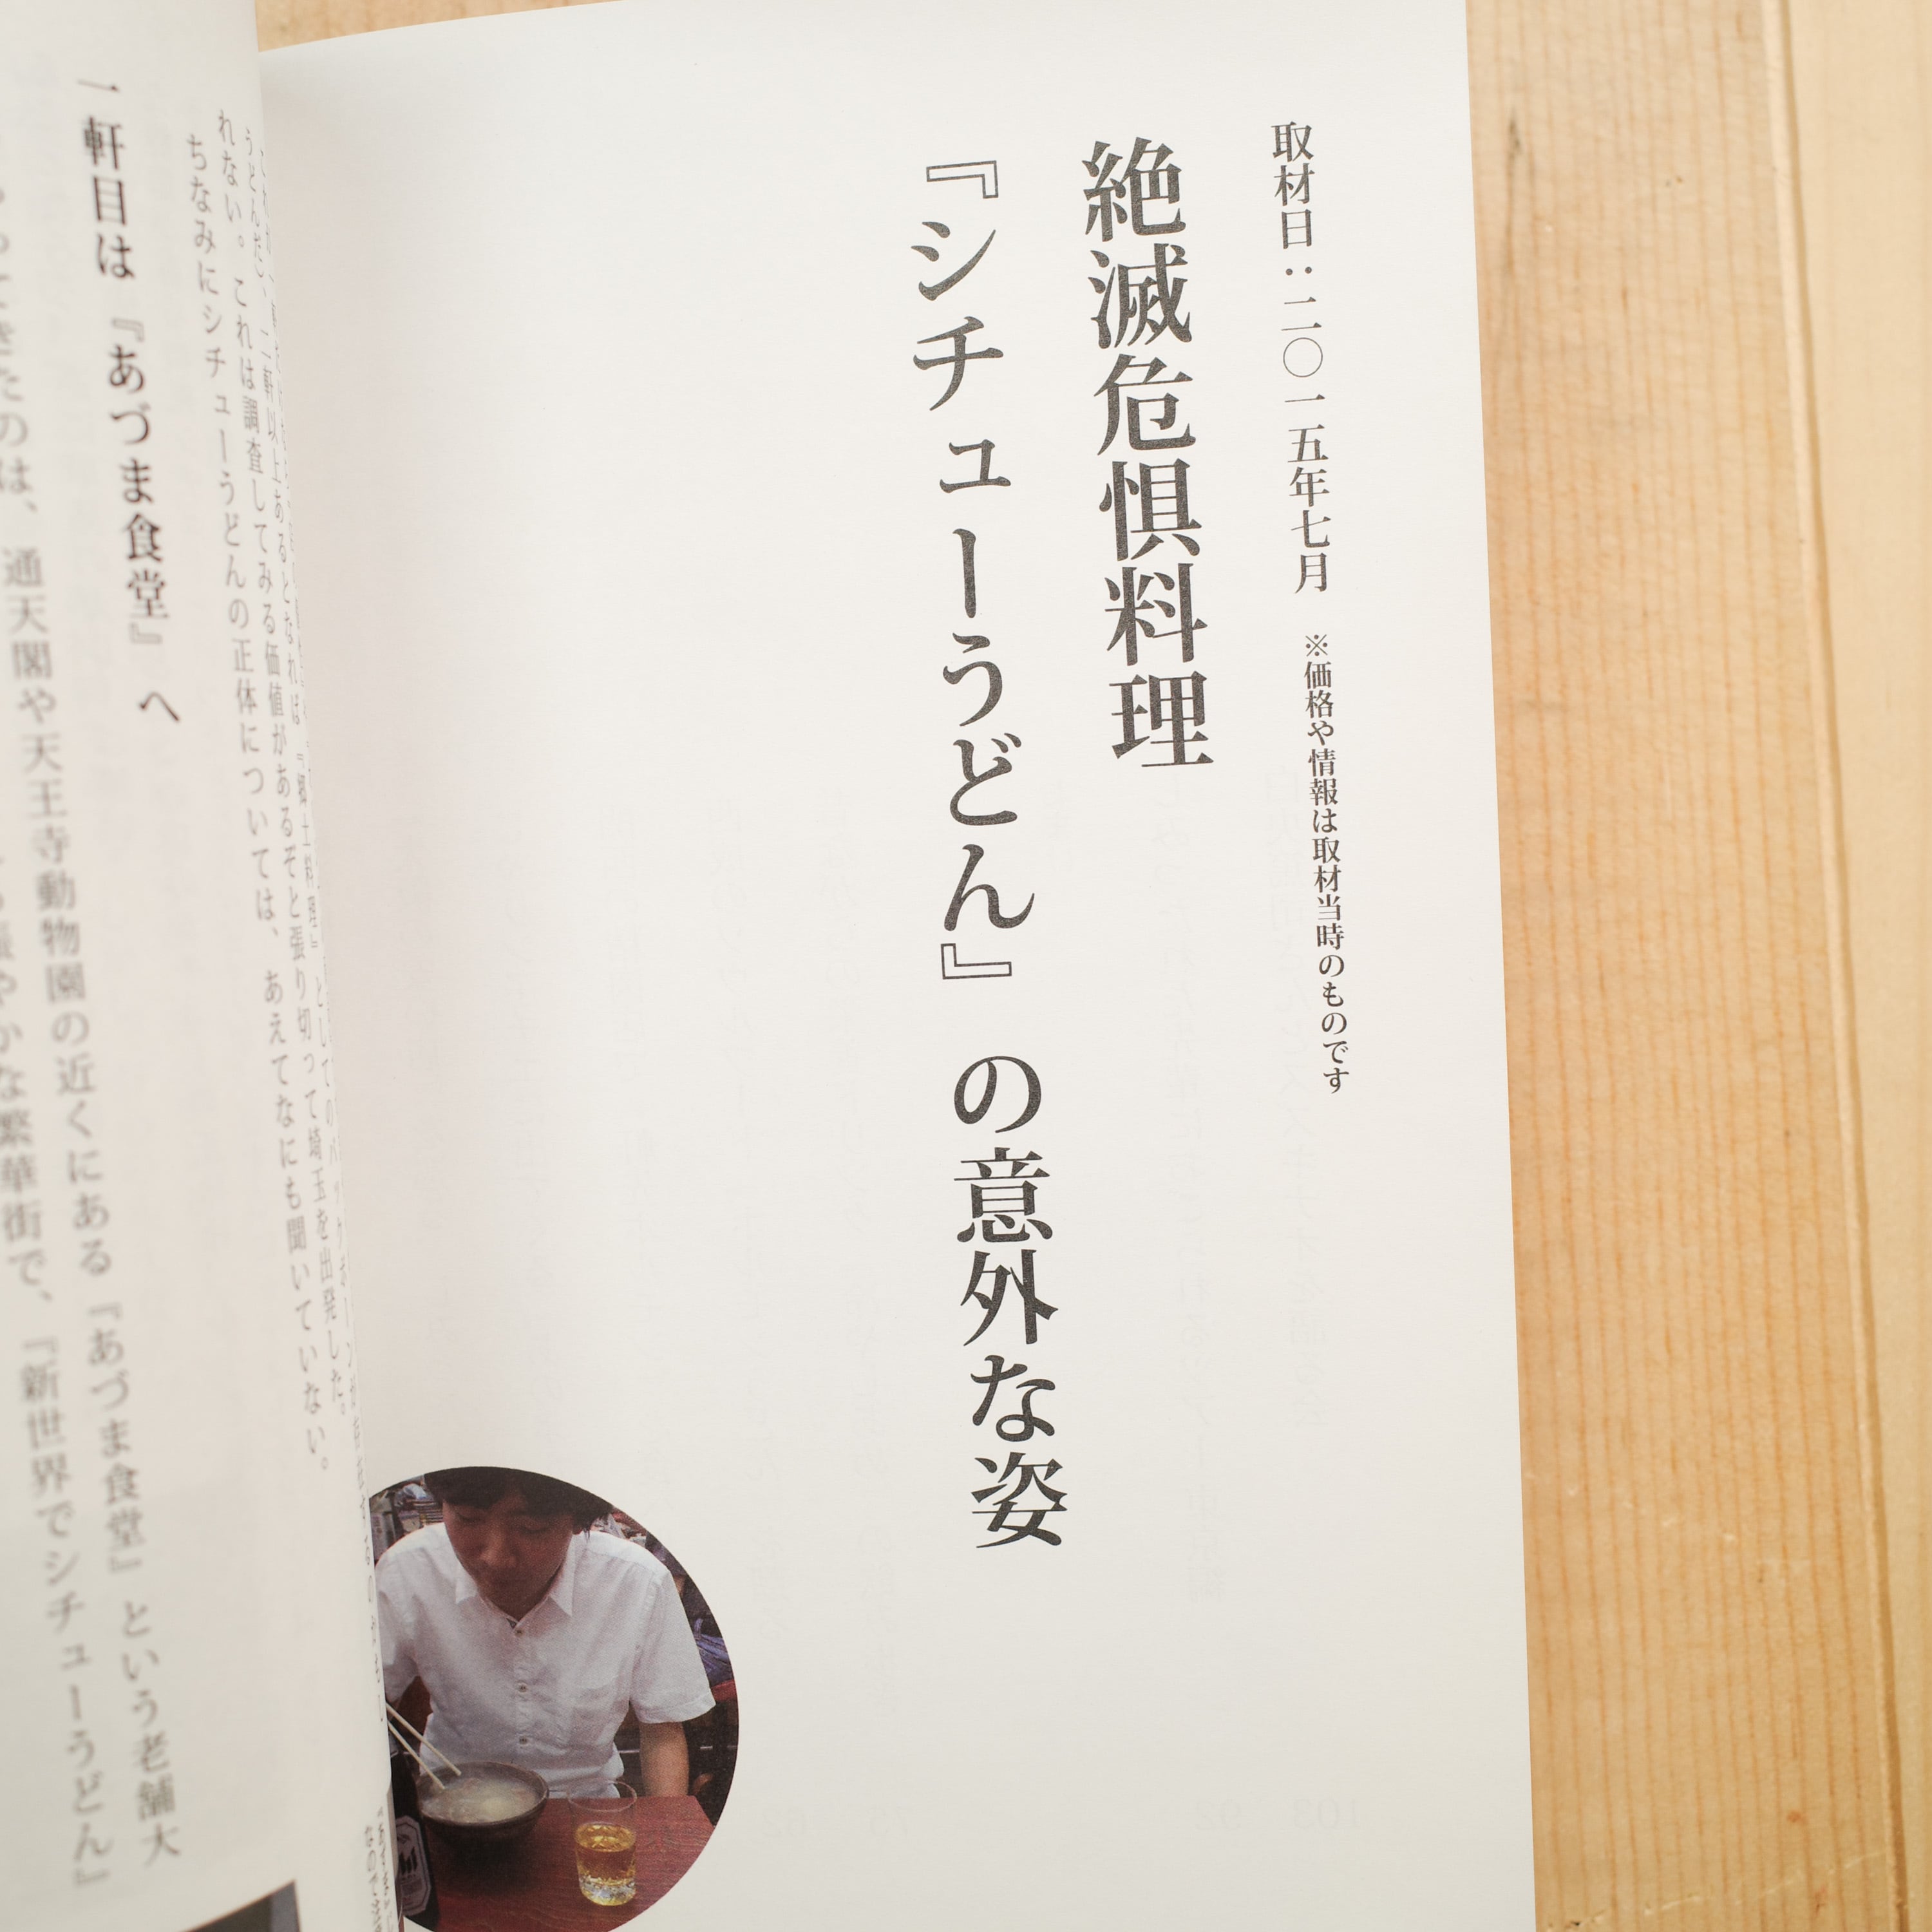 取材日：二〇一五年七月　※価格や情報は取材当時のものです
絶滅危惧料理
『シチューうどん』の意外な姿
れない。これは調査してみる価値があるぞと張り切って埼玉を出発した。
ちなみにシチューうどんの正体については、あえてなにも聞いていない。
一軒目は『あづま食堂』へ
通天閣や天王寺動物園の近くにある『あづま食堂』という老舗大
たのは、
やかな繁華街で、『新世界でシチューうどん』